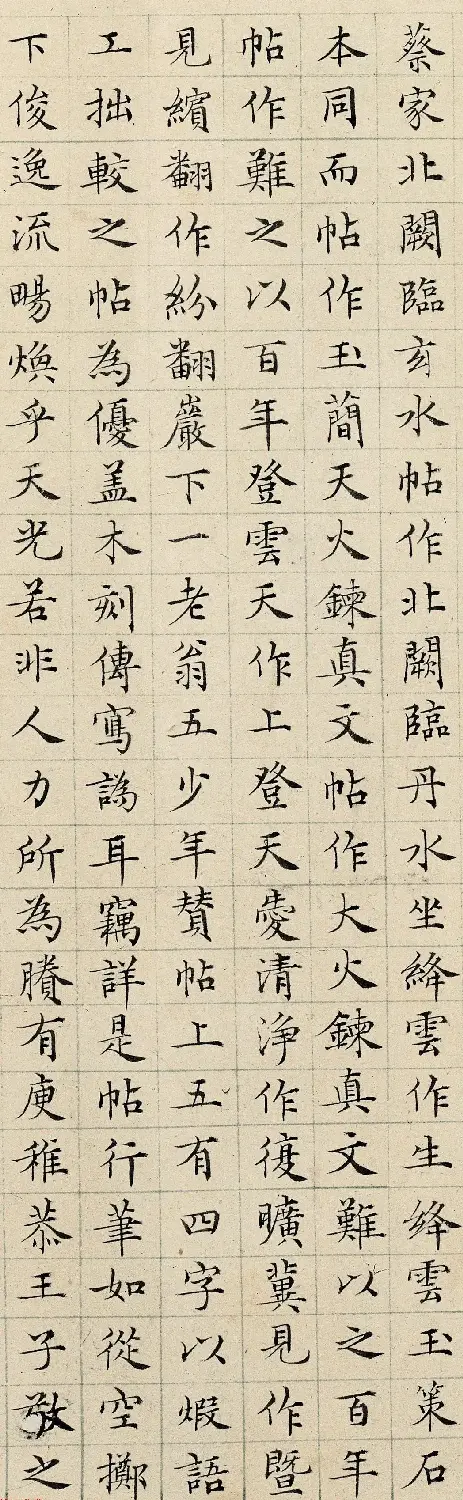 蔡家北闕臨亥水帖作北闕臨丹水坐絳雲作生絳雲玉策石
本同而帖作玉蕳天火鍊真文帖作大火鍊真文難以之百年
帖作難之以百年登雲天作上登天愛清淨作復曠冀見作暨
見繽翻作紛翻巖下一老翁五少年賛帖上五有四字以煆語
工拙較之帖為優盖木刻傳寫譌耳竊詳是帖行筆如從空擲
下俊逸流暢煥乎天光若非人力所為賸有庾稚恭王子敬之